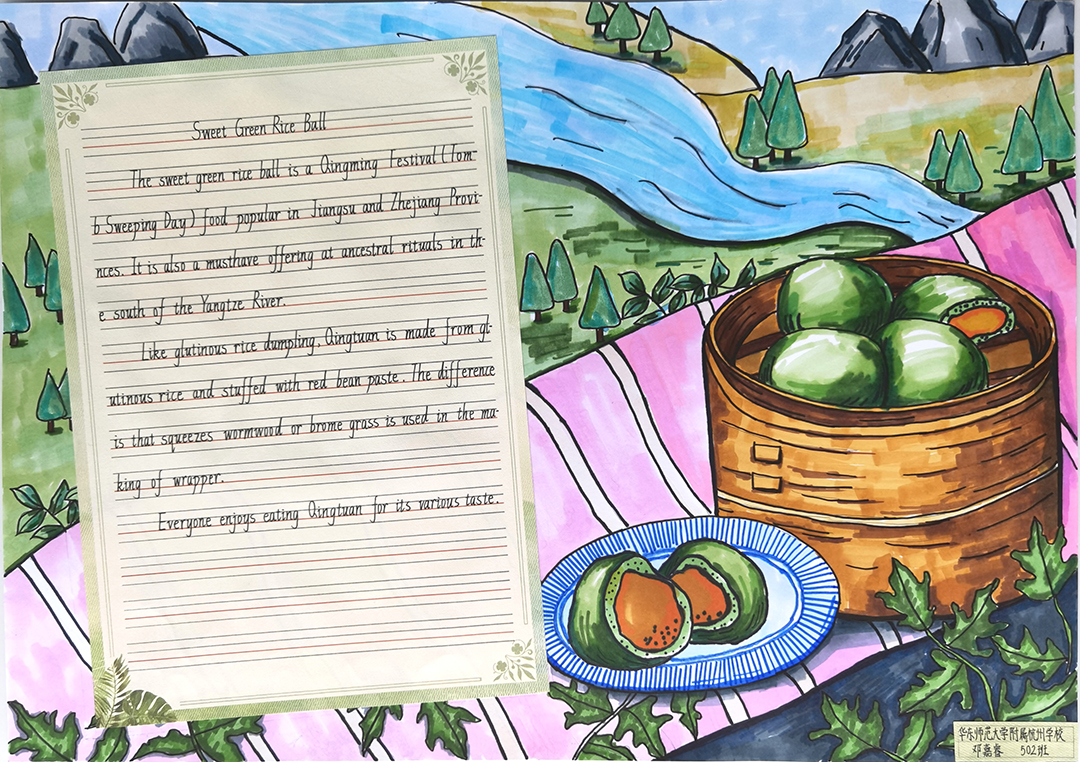 Sweet Green Rice Ball
The sweet green rice ball is a Qingming Festival (Tom-
b Sweeping Day) food popular in Jiangsu and Zhejiang Provi-
nces. It is also a musthave offering at ancestral rituals in th-
e south of the Yangtze River.
Like glutinous rice dumpling, Qingtuan is made from gl-
utinous rice and stuffed with red bean paste. The difference
is that squeezes wormwood or brome grass is used in the ma-
king of wrapper.
Everyone enjoys eating Qingtuan for its various taste.
华东师范大学附属杭州学校
邓嘉睿 502班